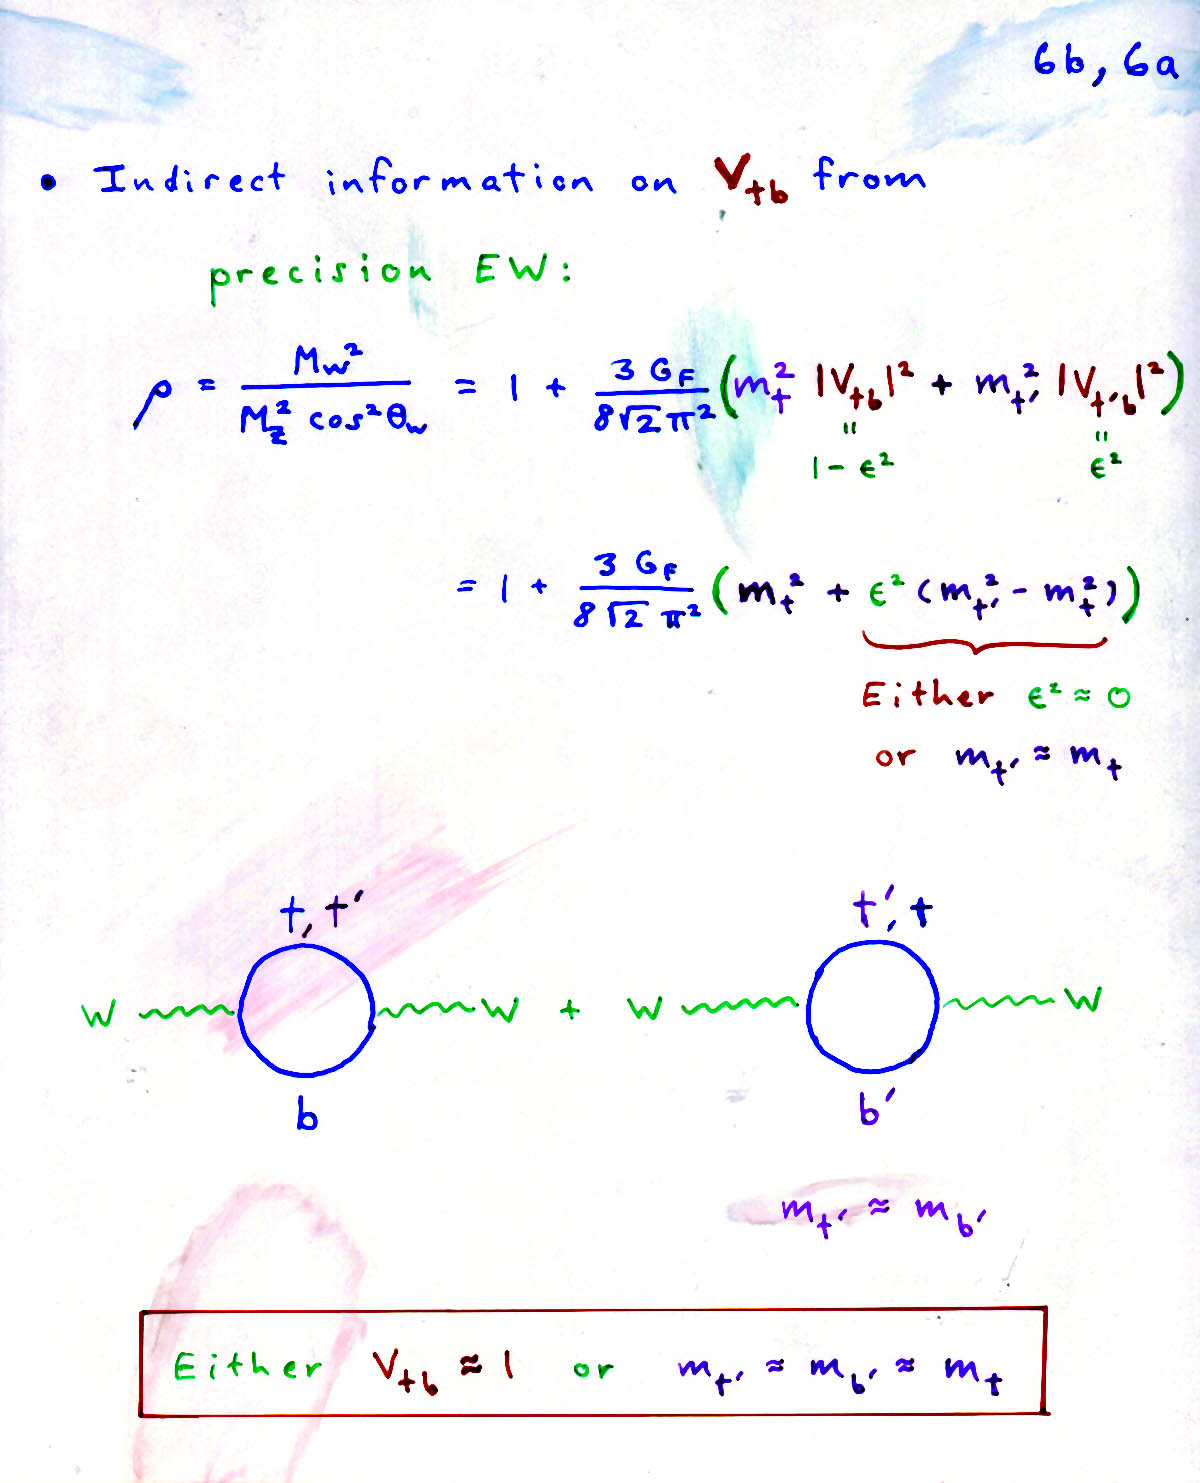 6b, 6a
• Indirect information on V_tb from
precision EW:
ρ = M_W² / (M_Z² cos²θ_w) = 1 + 3 G_F / (8√2 π²) (m_t² |V_tb|² + m_t'² |V_t'b|²)
" "
1 - ε² ε²
= 1 + 3 G_F / (8√2 π²) (m_t² + ε² (m_t'² - m_t²))
Either ε² ≈ 0
or m_t' ≈ m_t
t, t' t', t
W W + W W
b b'
m_t' ≈ m_b'
Either V_tb ≈ 1 or m_t' ≈ m_b' ≈ m_t